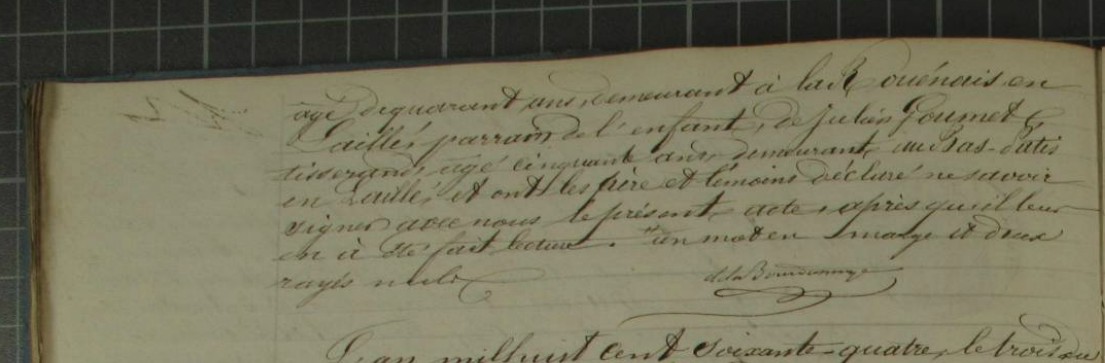 âgé de quarant ans, demeurant à la Rouénais en
Laillé, parrain de l'enfant, de Julien Goumet
tisserand, âgé cinquante ans, demeurant au Bas-Patis
en Laillé, et ont les père et témoins déclaré ne savoir
signer avec nous le présent acte, après qu'il leur
en à été fait lecture. un mot en marge et deux
rayés nuls
de la Bourdonnaye
L'an mil huit cent soixante-quatre, le trois du